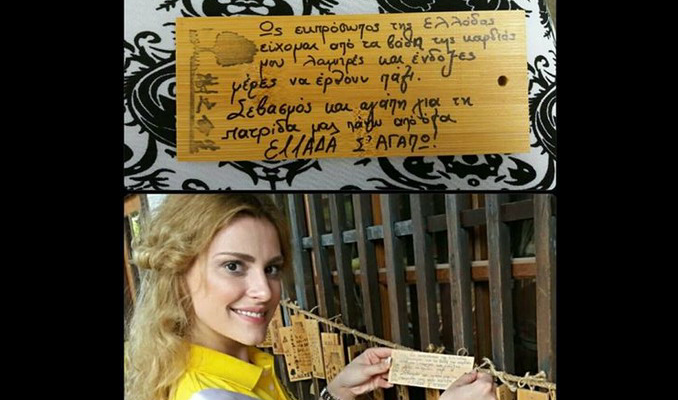 Ως εκπρόσωπος της Ελλάδας
εύχομαι από τα βάθη της καρδιάς
μου λαμπρές και ένδοξες
μέρες να έρθουν πάλι.
Σεβασμός και αγάπη για τη
πατρίδα μας πάνω απ'όλα
ΕΛΛΑΔΑ Σ'ΑΓΑΠΩ!